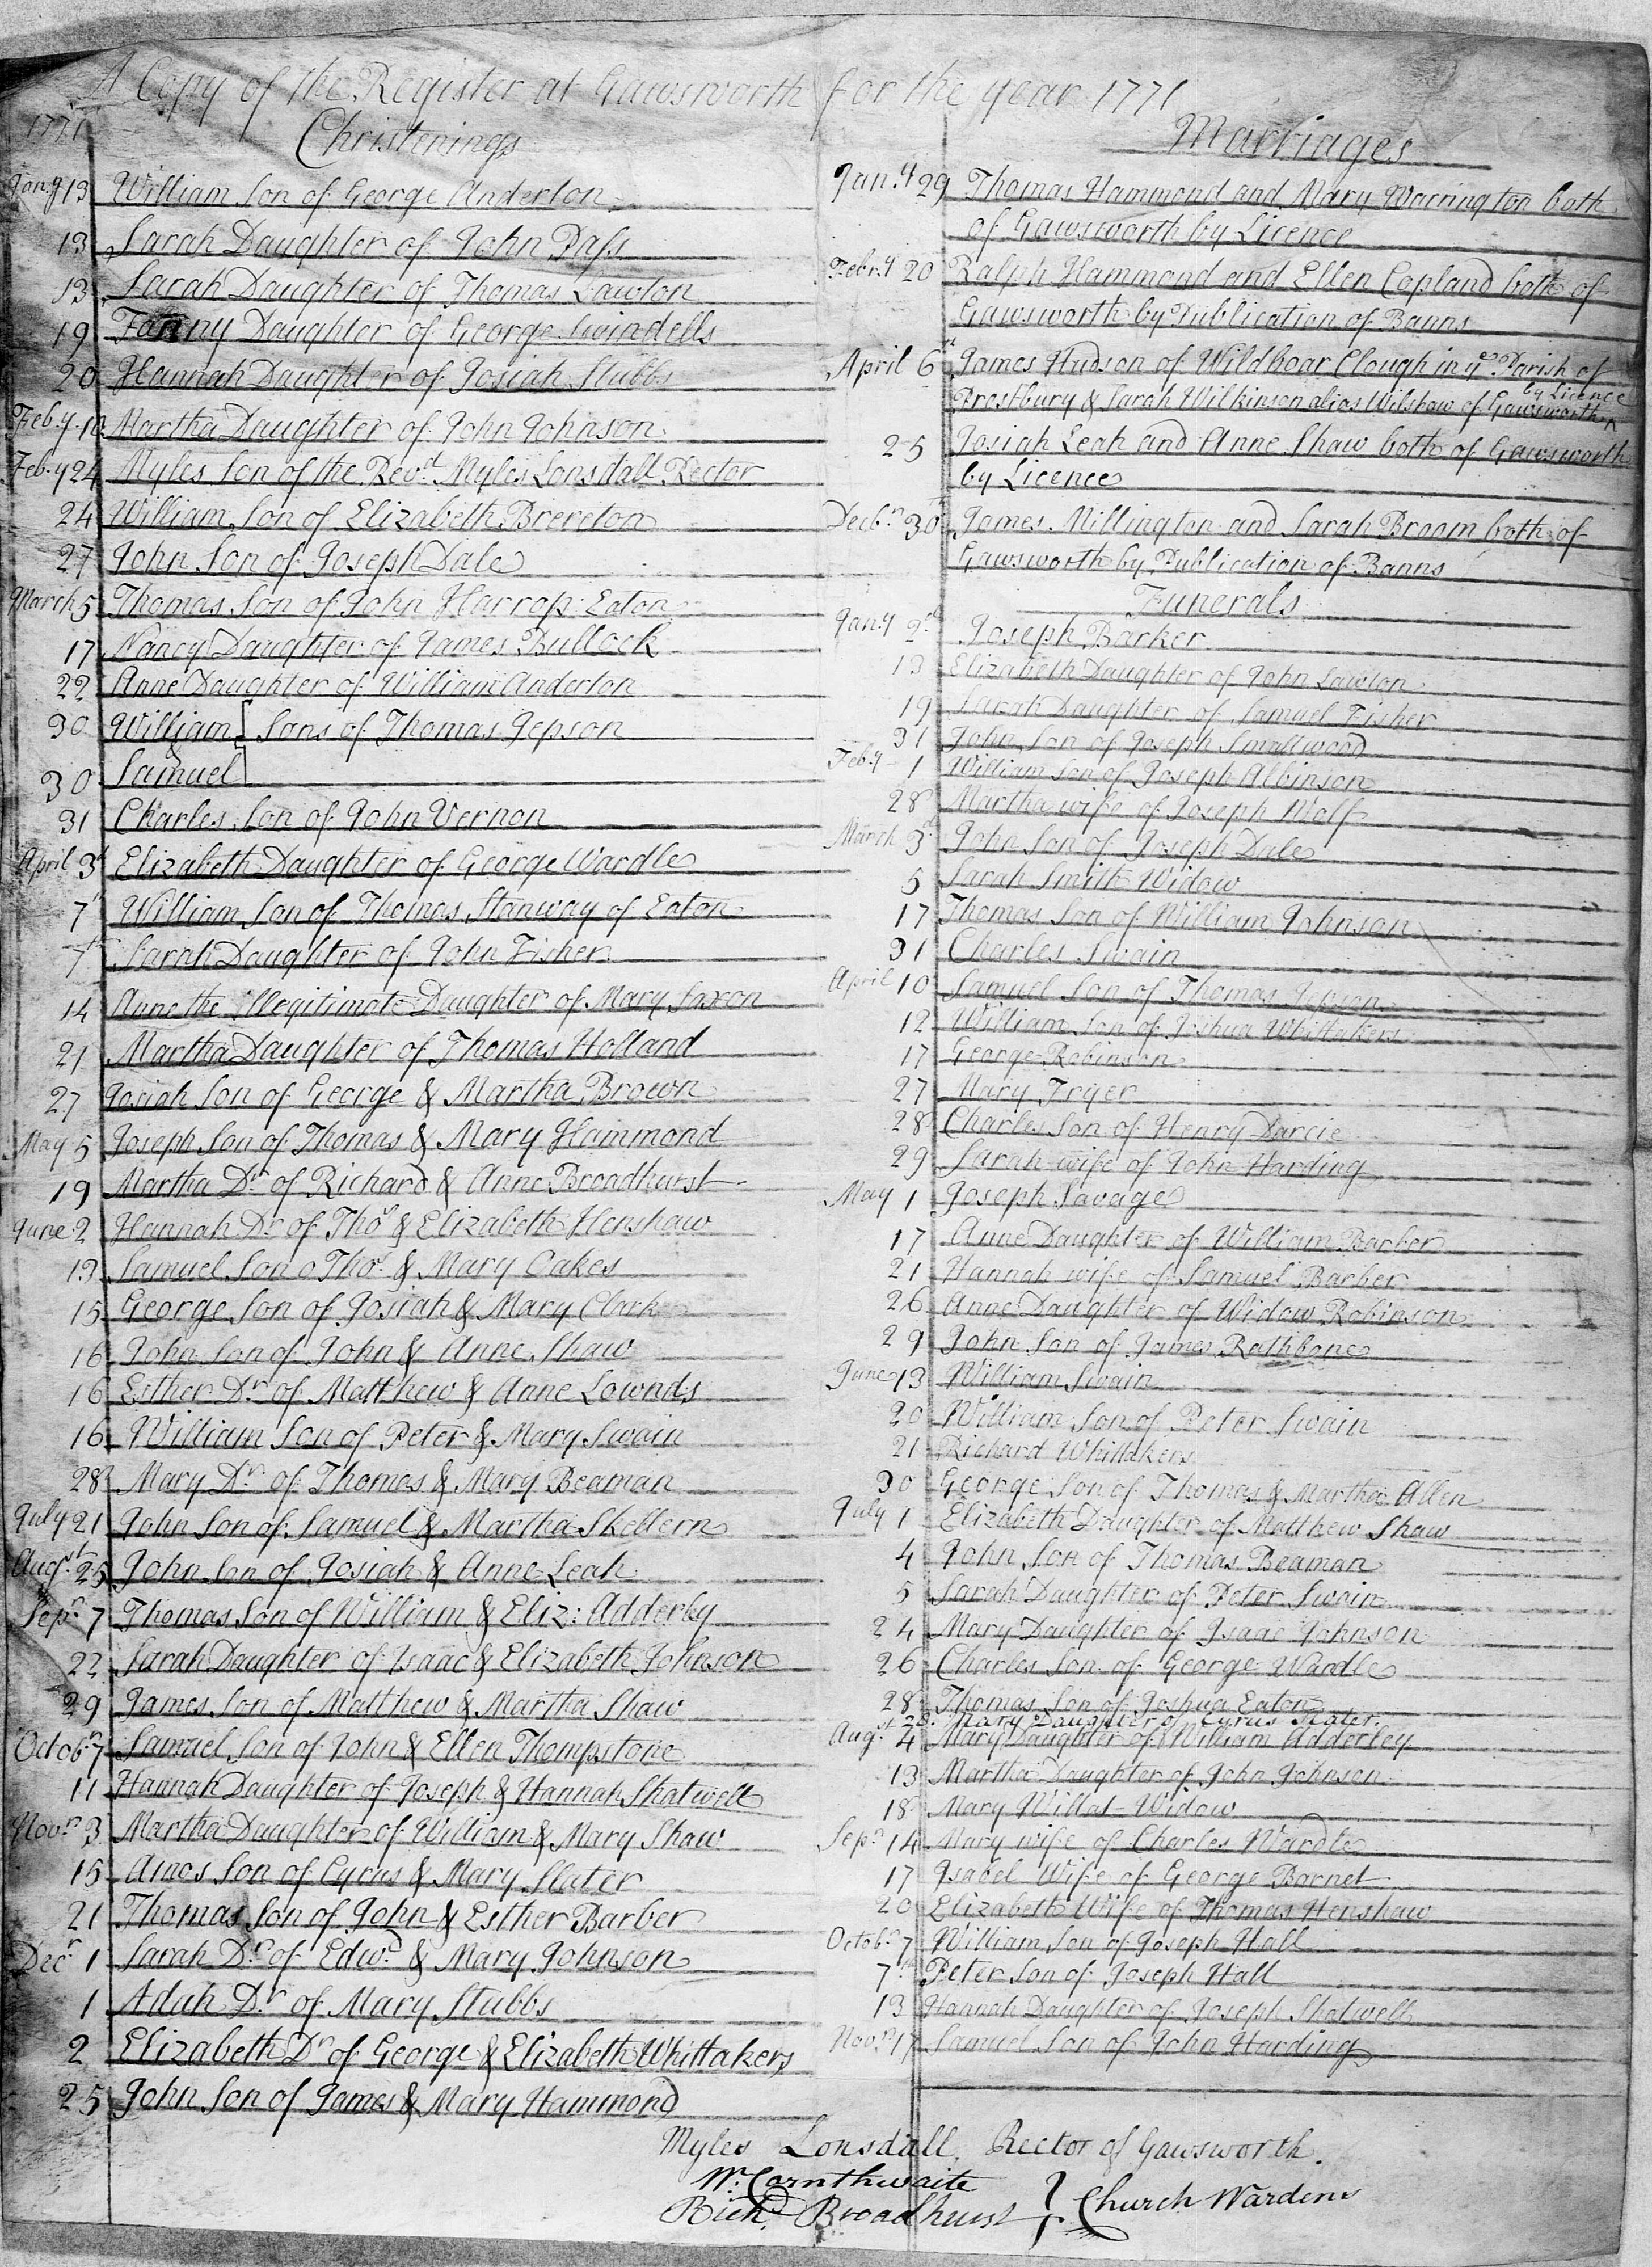 A Copy of the Register at Gawsworth for the year 1771
1771
Christenings
Jan.y 13 William Son of George Anderton
13 Sarah Daughter of John Pass
13 Sarah Daughter of Thomas Lawton
19 Fanny Daughter of George Swindells
20 Hannah Daughter of Josiah Stubbs
Feb.y 10 Martha Daughter of John Johnson
Feb.y 24 Myles Son of the Rev.d Myles Lonsdall Rector
24 William Son of Elizabeth Brereton
27 John Son of Joseph Dale
March 5 Thomas Son of John Harrop Eaton
17 Nancy Daughter of James Bullock
22 Anne Daughter of William Anderton
30 William } Sons of Thomas Jepson
&
30 Samuel
31 Charles Son of John Vernon
April 3d Elizabeth Daughter of George Wardle
7th William Son of Thomas Stanway of Eaton
7th Sarah Daughter of John Fisher
14 Anne the illegitimate Daughter of Mary Saxon
21 Martha Daughter of Thomas Holland
27 Josiah Son of George & Martha Brown
May 5 Joseph Son of Thomas & Mary Hammond
19 Martha Dr. of Richard & Anne Broadhurst
June 2 Hannah Dr. of Thos & Elizabeth Henshaw
13 Samuel Son o Thos. & Mary Oakes
15 George Son of Josiah & Mary Clark
16 John Son of John & Anne Shaw
16 Esther Dr. of Matthew & Anne Lownds
16 William Son of Peter & Mary Swain
28 Mary Dr. of Thomas & Mary Beaman
July 21 John Son of Samuel & Martha Skellern
Augst. 25 John Son of Josiah & Anne Leah
Sepr. 7 Thomas Son of William & Eliz: Adderley
22 Sarah Daughter of Isaac & Elizabeth Johnson
29 James Son of Matthew & Martha Shaw
Octobr. 7 Samuel Son of John & Ellen Thompstone
11 Hannah Daughter of Joseph & Hannah Shatwell
Novr. 3 Martha Daughter of William & Mary Shaw
15 Amos Son of Cyrus & Mary Slater
21 Thomas Son of John & Esther Barber
Decr. 1 Sarah Dr. of Edwd. & Mary Johnson
1 Adah Dr. of Mary Stubbs
2 Elizabeth Dr. of George & Elizabeth Whittakers
25 John Son of James & Mary Hammond
Marriages
Jan.y 29 Thomas Hammond and Mary Warrington both
of Gawsworth by Licence
Febr.y 20 Ralph Hammond and Ellen Copland both of
Gawsworth by Publication of Banns
April 6th James Hudson of Wildboar Clough in ye Parish of
by Licence
Prestbury & Sarah Wilkinson alias Wilshaw of Gawsworth ^
25 Josiah Leah and Anne Shaw both of Gawsworth
by Licence
Decbr. 30th James Millington and Sarah Broom both of
Gawsworth by Publication of Banns
Funerals
Jan.y 2d Joseph Barker
13 Elizabeth Daughter of John Lawton
19 Sarah Daughter of Samuel Fisher
31 John Son of Joseph Smallwood
Feb.y 1 William Son of Joseph Albinson
28 Martha wife of Joseph Wolf
March 3d John Son of Joseph Dale
5 Sarah Smith Widow
17 Thomas Son of William Johnson
31 Charles Swain
April 10 Samuel Son of Thomas Jepson
12 William Son of Joshua Whittakers
17 George Robinson
27 Mary Fryer
28 Charles Son of Henry Darcie
29 Sarah wife of John Harding
May 1 Joseph Savage
17 Anne Daughter of William Barber
21 Hannah wife of Samuel Barber
26 Anne Daughter of Widow Robinson
29 John Son of James Rathbone
June 13 William Swain
20 William Son of Peter Swain
21 Richard Whittakers
30 George Son of Thomas & Martha Allen
July 1 Elizabeth Daughter of Matthew Shaw
4 John Son of Thomas Beaman
5 Sarah Daughter of Peter Swain
24 Mary Daughter of Isaac Johnson
26 Charles Son of George Wardle
28 Thomas Son of Joshua Eaton
28. Mary Daughter of Cyrus Slater
Augst. 4 Mary Daughter of William Adderley
13 Martha Daughter of John Johnson
18 Mary Willat Widow
Sepr. 14 Mary wife of Charles Wardle
17 Isabel Wife of George Barnet
20 Elizabeth Wife of Thomas Henshaw
Octobr. 7 William Son of Joseph Hall
7th Peter Son of Joseph Hall
13 Hannah Daughter of Joseph Shatwell
Novr. 17 Samuel Son of John Harding
Myles Lonsdall, Rector of Gawsworth.
Wm. Cornthwaite
Richd. Broadhurst } Church Wardens